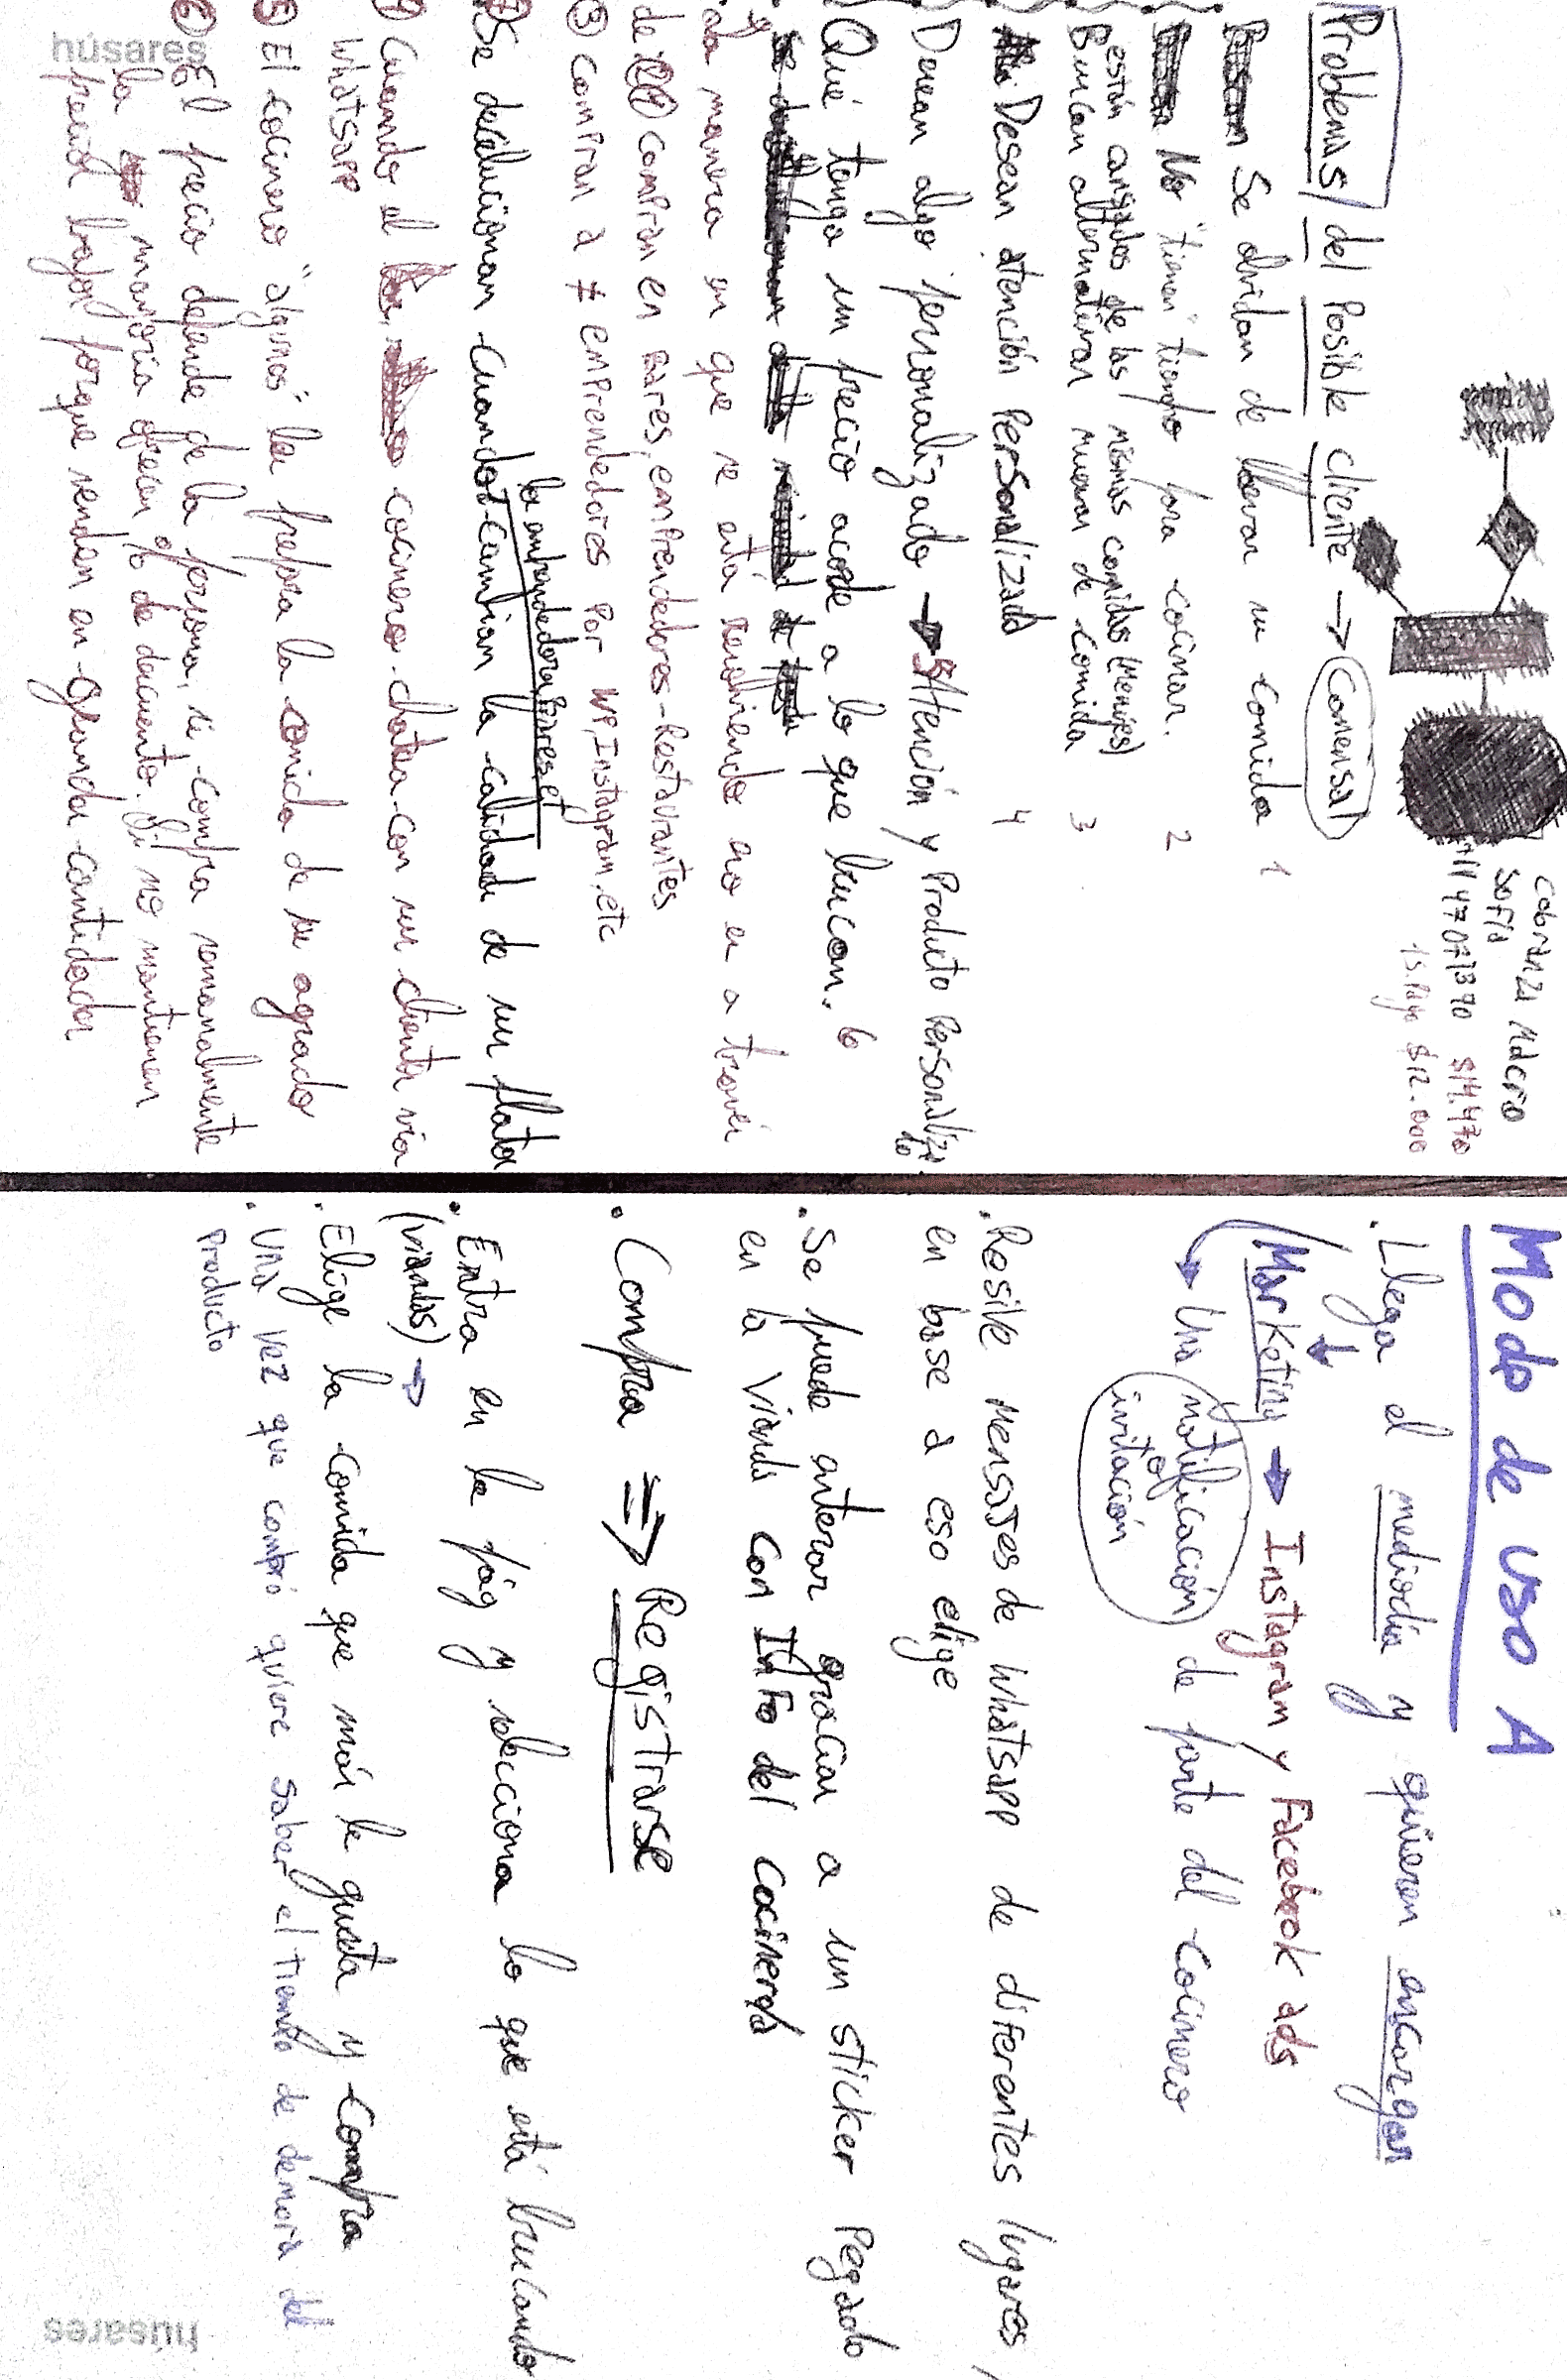 Cobranza Macro
Sofia
1147071390 $14.470
15. Pago $12.000
Problemas/ del Posible cliente → Comensal
Se olvidan de llevar su comida 1
No "tienen" tiempo para cocinar. 2
están cansados de las mismas comidas (menújes)
Buscan alternativas nuevas de comida 3
Desean atención Personalizada 4
Desean algo personalizado → 5 Atención y Producto Personaliza
do
Qué tenga un precio acorde a lo que buscan. 6
manera en que se está resolviendo eso es a través
de: compran en Bares, emprendedores - Restaurantes
③ compran a ≠ emprendedores Por WP, Instagram, etc
los emprendedores, Bares, etc
Se desilucionan cuando cambian la calidad de sus platos
④ Cuando el cocinero chatea con sus clientes vía
Whatsapp
⑤ El cocinero "algunos" les prepara la comida de su agrado
⑥ El precio depende de la persona, si compra semanalmente
la mayoría ofrecen % de descuento. Si no mantienen
precios bajos porque venden en grandes cantidades
húsares
Modo de uso A
. Llega el mediodía y quieren encargar
Marketing → Instagram y Facebook ads
→ Una notificación de parte del cocinero
o
invitación
. Resive mensajes de Whatsapp de diferentes lugares /
en base a eso elige
. Se puede enterar gracias a un sticker Pegado
en la vianda con Info del cocinero/a
. Compra ⇒ Registrarse
. Entra en la pág y selecciona lo que está buscando
(viandas) →
. Elige la comida que más le gusta y compra
. Una vez que compró quiere saber el tiempo de demora del
Producto
húsares